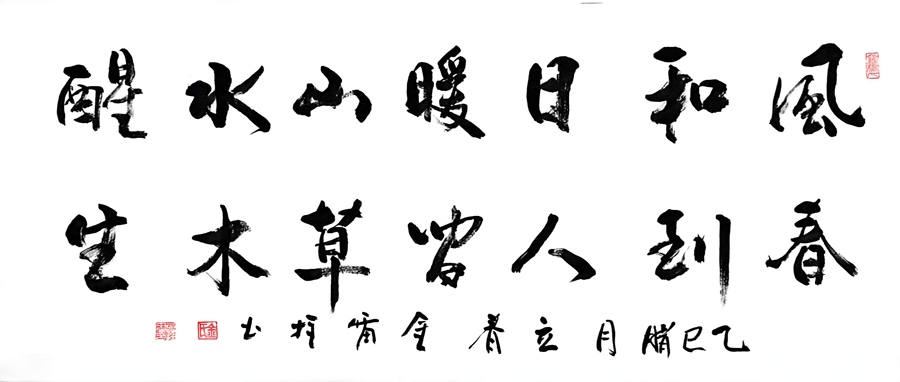 風和日暖山水醒
春到人間草木生
乙巳腊月立春金柱书